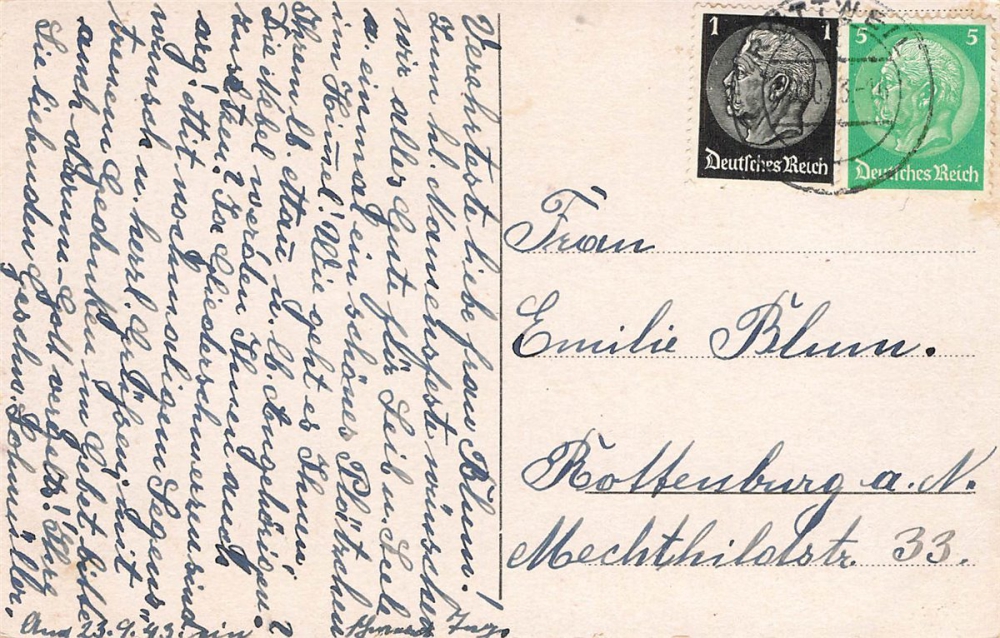 Verehrteste liebe Frau Blum!
Zum hl. Namensfeste wünschen
wir alles Gute für Leib u. Seele
u. einmal ein schönes Plätzchen
im Himmel! Wie geht es Ihnen,
Ihrem lb. Mañ u. lb. Angehörigen?
Die Übel werden Ihnen auch
zusetzen? Ja Gliederschmerzen sind
arg! Mit nochmaligem Segens-
wunsch u. herzl. Grüßen, mit
treuem Gedenken im Gebet, bitte
auch darum. Gott vergelt's! Ihre
Sie liebenden Geschw. Lohmüller.
23. 9. 43.
1 1
Deutsches Reich
5 5
Deutsches Reich
Frau
Emilie Blum.
Rottenburg a. N.
Mechthildstr. 33.